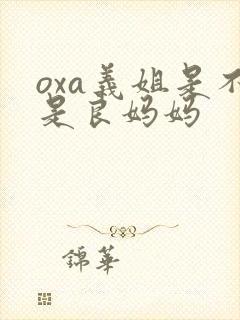 oxa義姐是不
是良妈妈
錦華